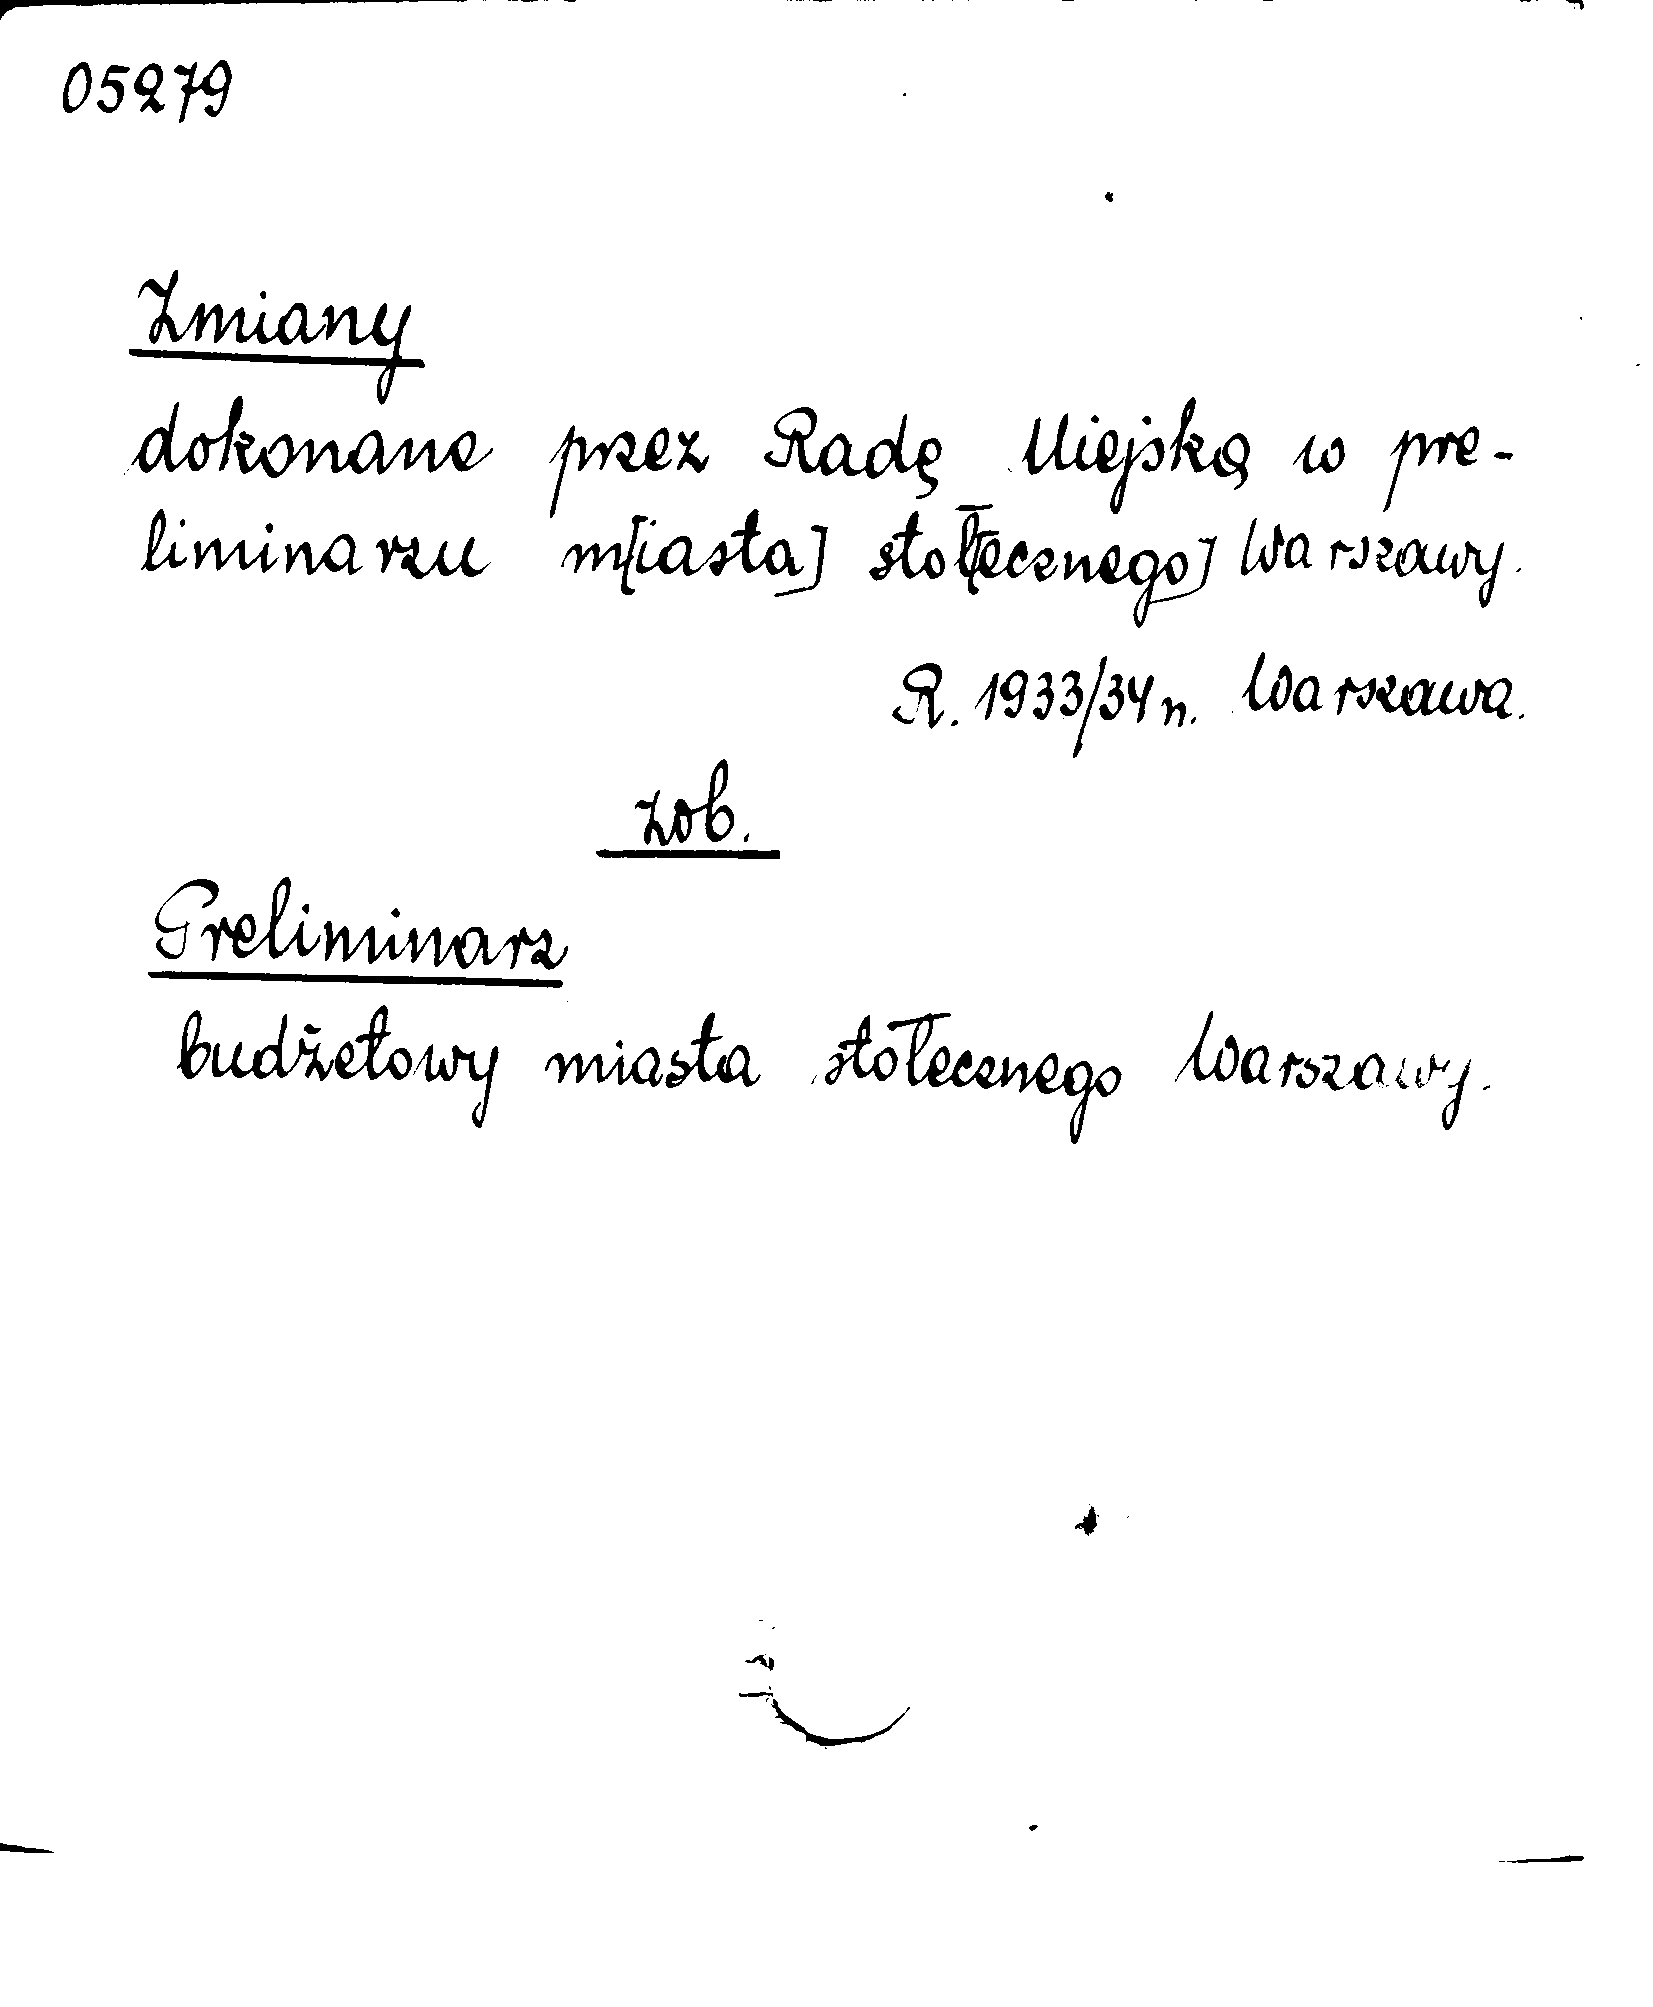 05279
Zmiany
dokonane przez Radę Miejską w pre-
liminarzu m[iasta] stoł[ecznego] Warszawy.
R. 1933/34 n. Warszawa.
zob.
Preliminarz
budżetowy miasta stołecznego Warszawy.